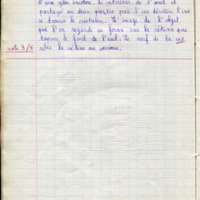 D'une glan inverse. le intérieur de l'oeil est
partagé en deux partie par l'iris derrière l'iris
se trouve le cristalin. L'image de l'objet
que l'on regarde se forme sur la rétine qui
tapisse le fond de l'oeil. Le nerf de la
relie la rétine au cerveau.
note 3/4